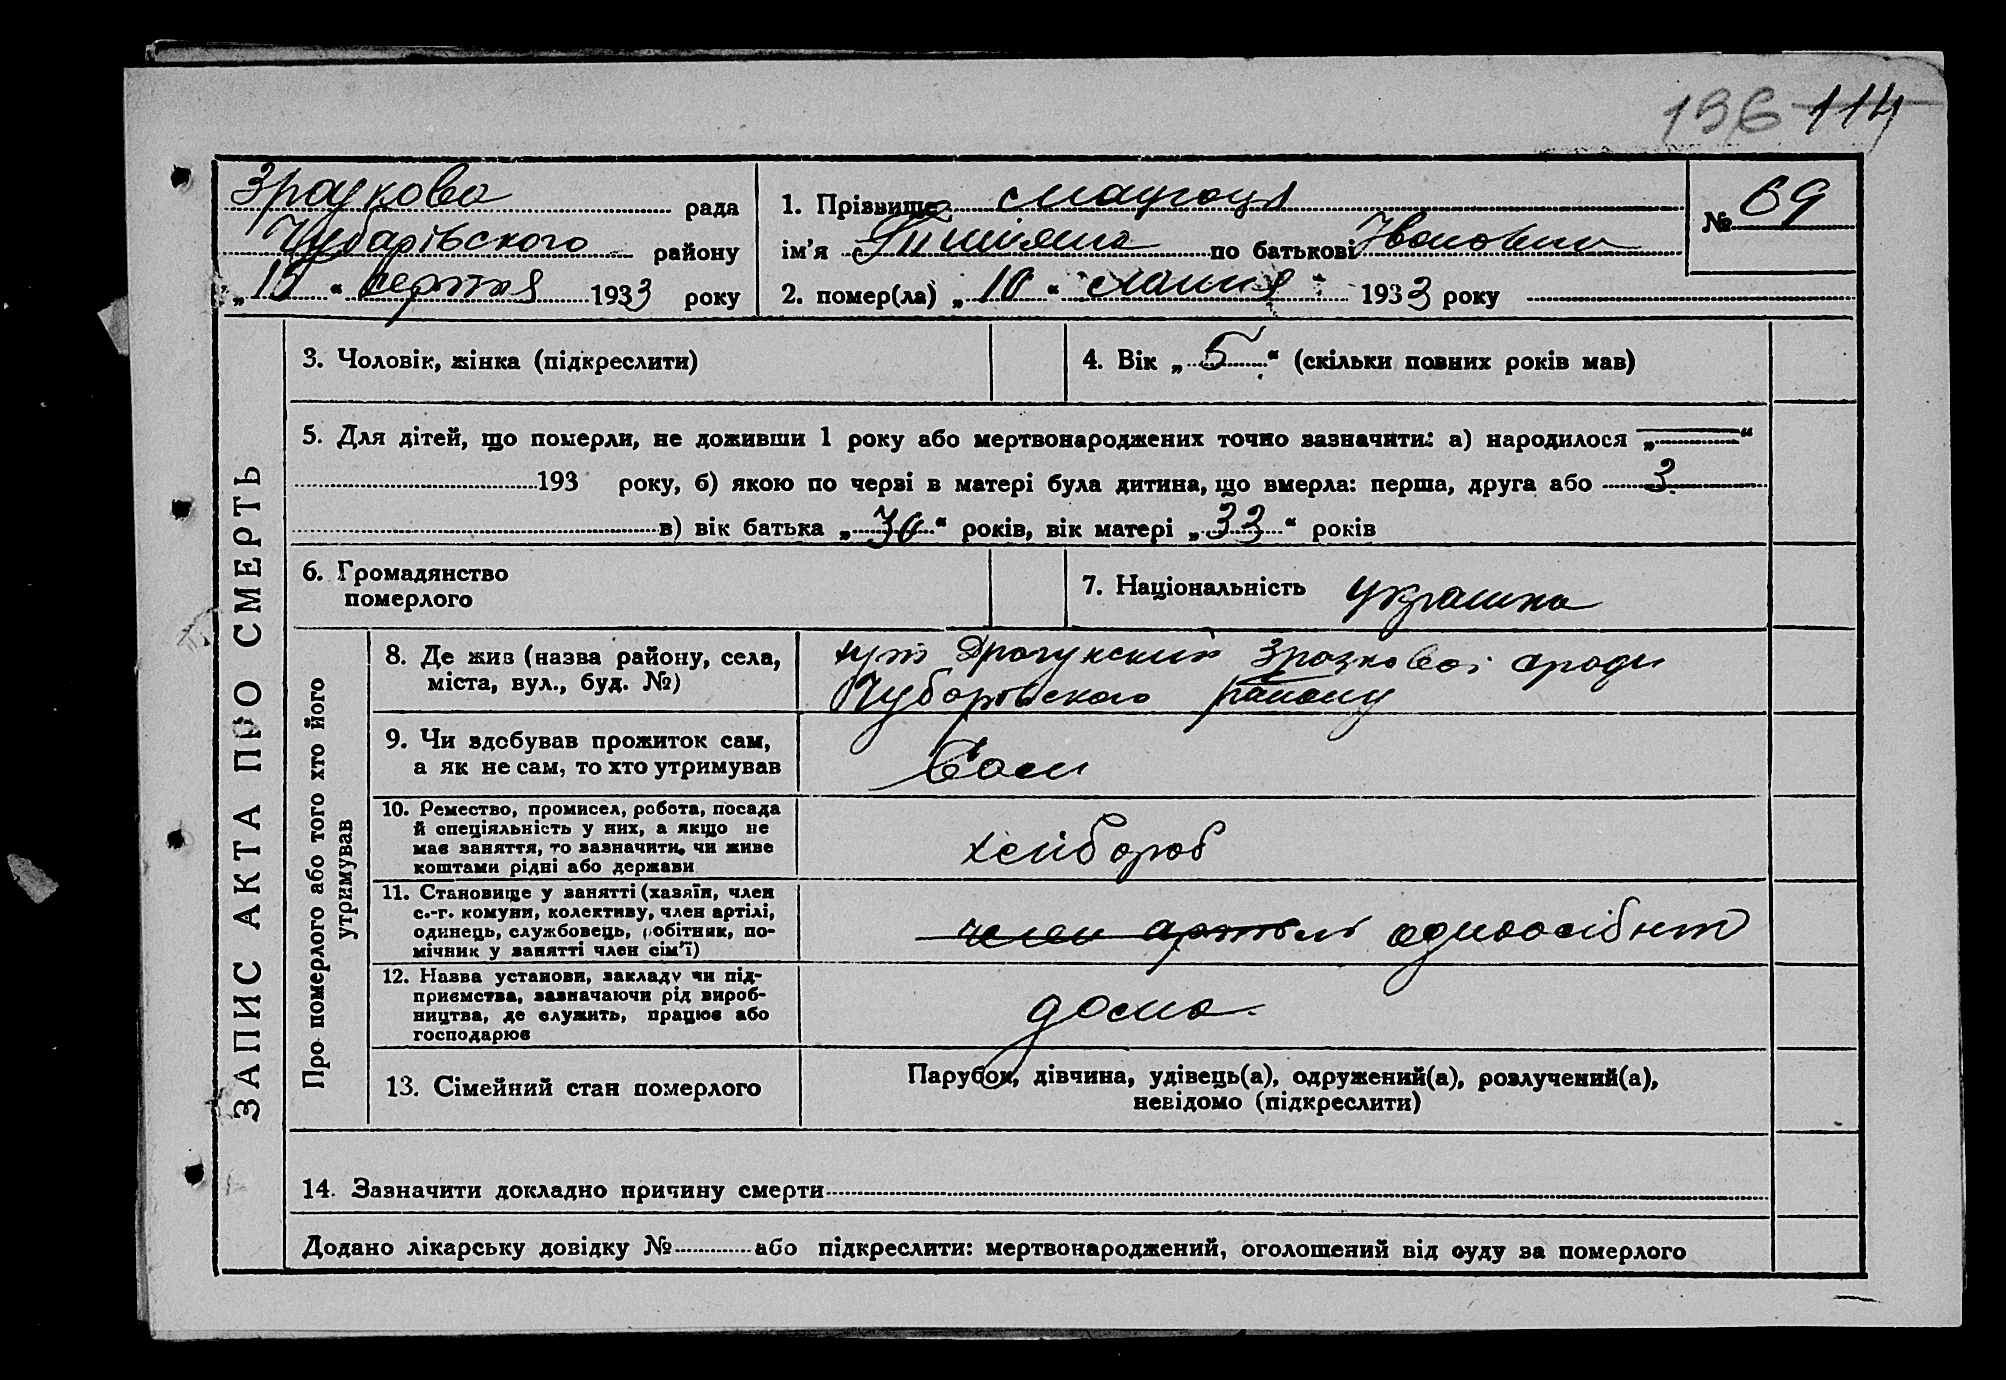 136 114
Зразкова рада
Чубарівського району
„ 15 “ серпня 1933 року
1. Прізвище
ім'я по батькові Івановна
2. помер(ла) „ 10 “ 1933 року
№ 69
ЗАПИС АКТА ПРО СМЕРТЬ
3. Чоловік, жінка (підкреслити)
4. Вік „ 5 “ (скільки повних років мав)
5. Для дітей, що померли, не доживши 1 року або мертвонароджених точно зазначити: а) народилося „ — “
193 року, б) якою по черзі в матері була дитина, що вмерла: перша, друга або 3
в) вік батька „ 36 “ років, вік матері „ 33 “ років
6. Громадянство
померлого
7. Національність украинка
Про померлого або того хто його
утримував
8. Де жив (назва району, села,
міста, вул., буд. №)
хут Зразковоі сроди
Чубаровского району
9. Чи здобував прожиток сам,
а як не сам, то хто утримував
10. Ремество, промисел, робота, посада
й спеціяльність у них, а якщо не
має заняття, то зазначити, чи живе
коштами рідні або держави
хлібороб
11. Становище у занятті (хазяїн, член
с.-г. комуни, колективу, член артілі,
одинець, службовець, робітник, по-
мічник у занятті член сім'ї)
член артель одноосібнт
12. Назва установи, закладу чи під-
приємства, зазначаючи рід вироб-
ництва, де служить, працює або
господарює
дома.
13. Сімейний стан померлого
Парубок, дівчина, удівець(а), одружений(а), розлучений(а),
невідомо (підкреслити)
14. Зазначити докладно причину смерти
Додано лікарську довідку № або підкреслити: мертвонароджений, оголошений від суду за померлого